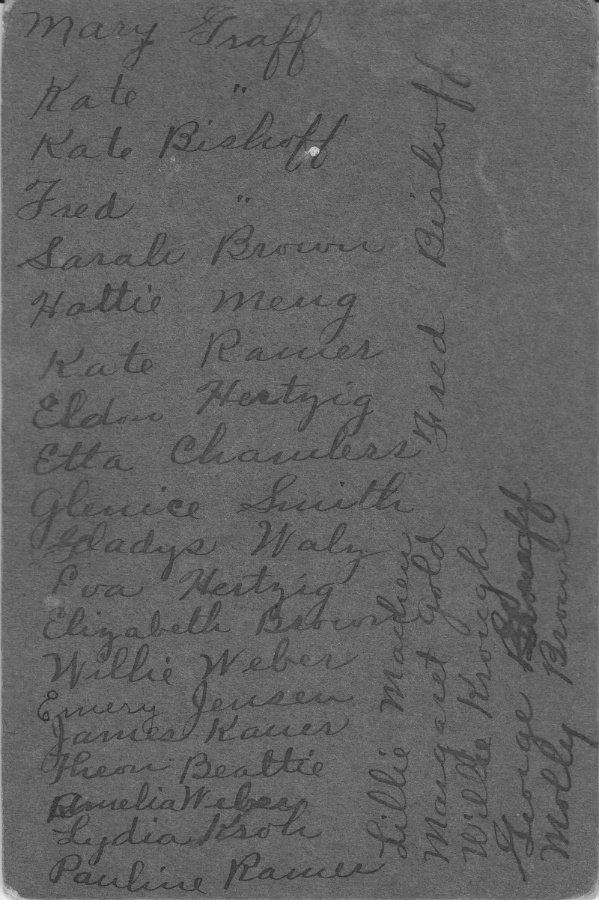 Mary Graff
Kate "
Kate Bishoff
Fred "
Sarah Brown
Hattie Meng
Kate Ramer
Eldon Hertzig
Etta Chambers
Glenice Smith
Gladys Walz
Eva Hertzig
Elizabeth Brown
Willie Weber
Emery Jensen
James Kauer
Theon Beattie
Amelia Weber
Lydia Kroh
Pauline Ramer
Fred Bishoff
Lillie
Margaret Gold
Willie Krough
George
Molly Brown